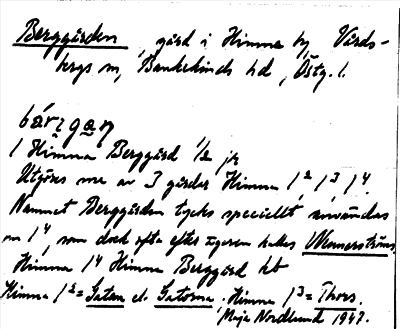 Berggården, gård i Himna by, Vårds-
bergs sn, Bankekinds hd, Östg. l.
bárꞬgaṇ
1 Himna Berggård 1/2 jk
Utgöres nu av 3 gårdar Himna 1² 1³ 1⁴.
Namnet Berggården tycks speciellt användas
om 1⁴, som dock ofta efter ägaren kallas Wennerströms.
Himna 1⁴ Himna Berggård kb
Himna 1² = Gatan el. Gatorna. Himna 1³ = Thors.
Maja Nordlund 1947.